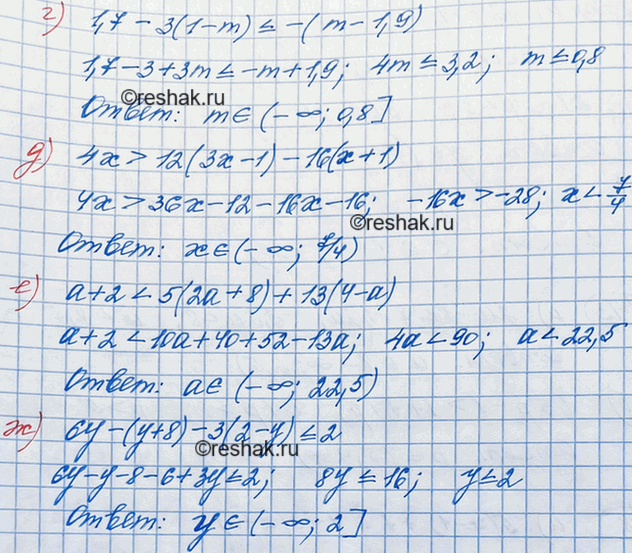 г) 1,7 - 3(1-m) ≤ -(m-1,9)
1,7-3+3m ≤ -m+1,9; 4m ≤ 3,2; m ≤ 0,8
©reshak.ru
Ответ: m ∈ (-∞; 0,8]
д) 4x > 12(3x-1) - 16(x+1)
4x > 36x-12-16x-16; -16x > -28; x < 7/4
©reshak.ru
Ответ: x ∈ (-∞; 7/4)
е) a+2 < 5(2a+8) + 13(4-a)
a+2 < 10a+40+52-13a; 4a < 90; a < 22,5
Ответ: a ∈ (-∞; 22,5)
ж) 6y-(y+8)-3(2-y) ≤ 2
©reshak.ru
6y-y-8-6+3y ≤ 2; 8y ≤ 16; y ≤ 2
Ответ: y ∈ (-∞; 2]